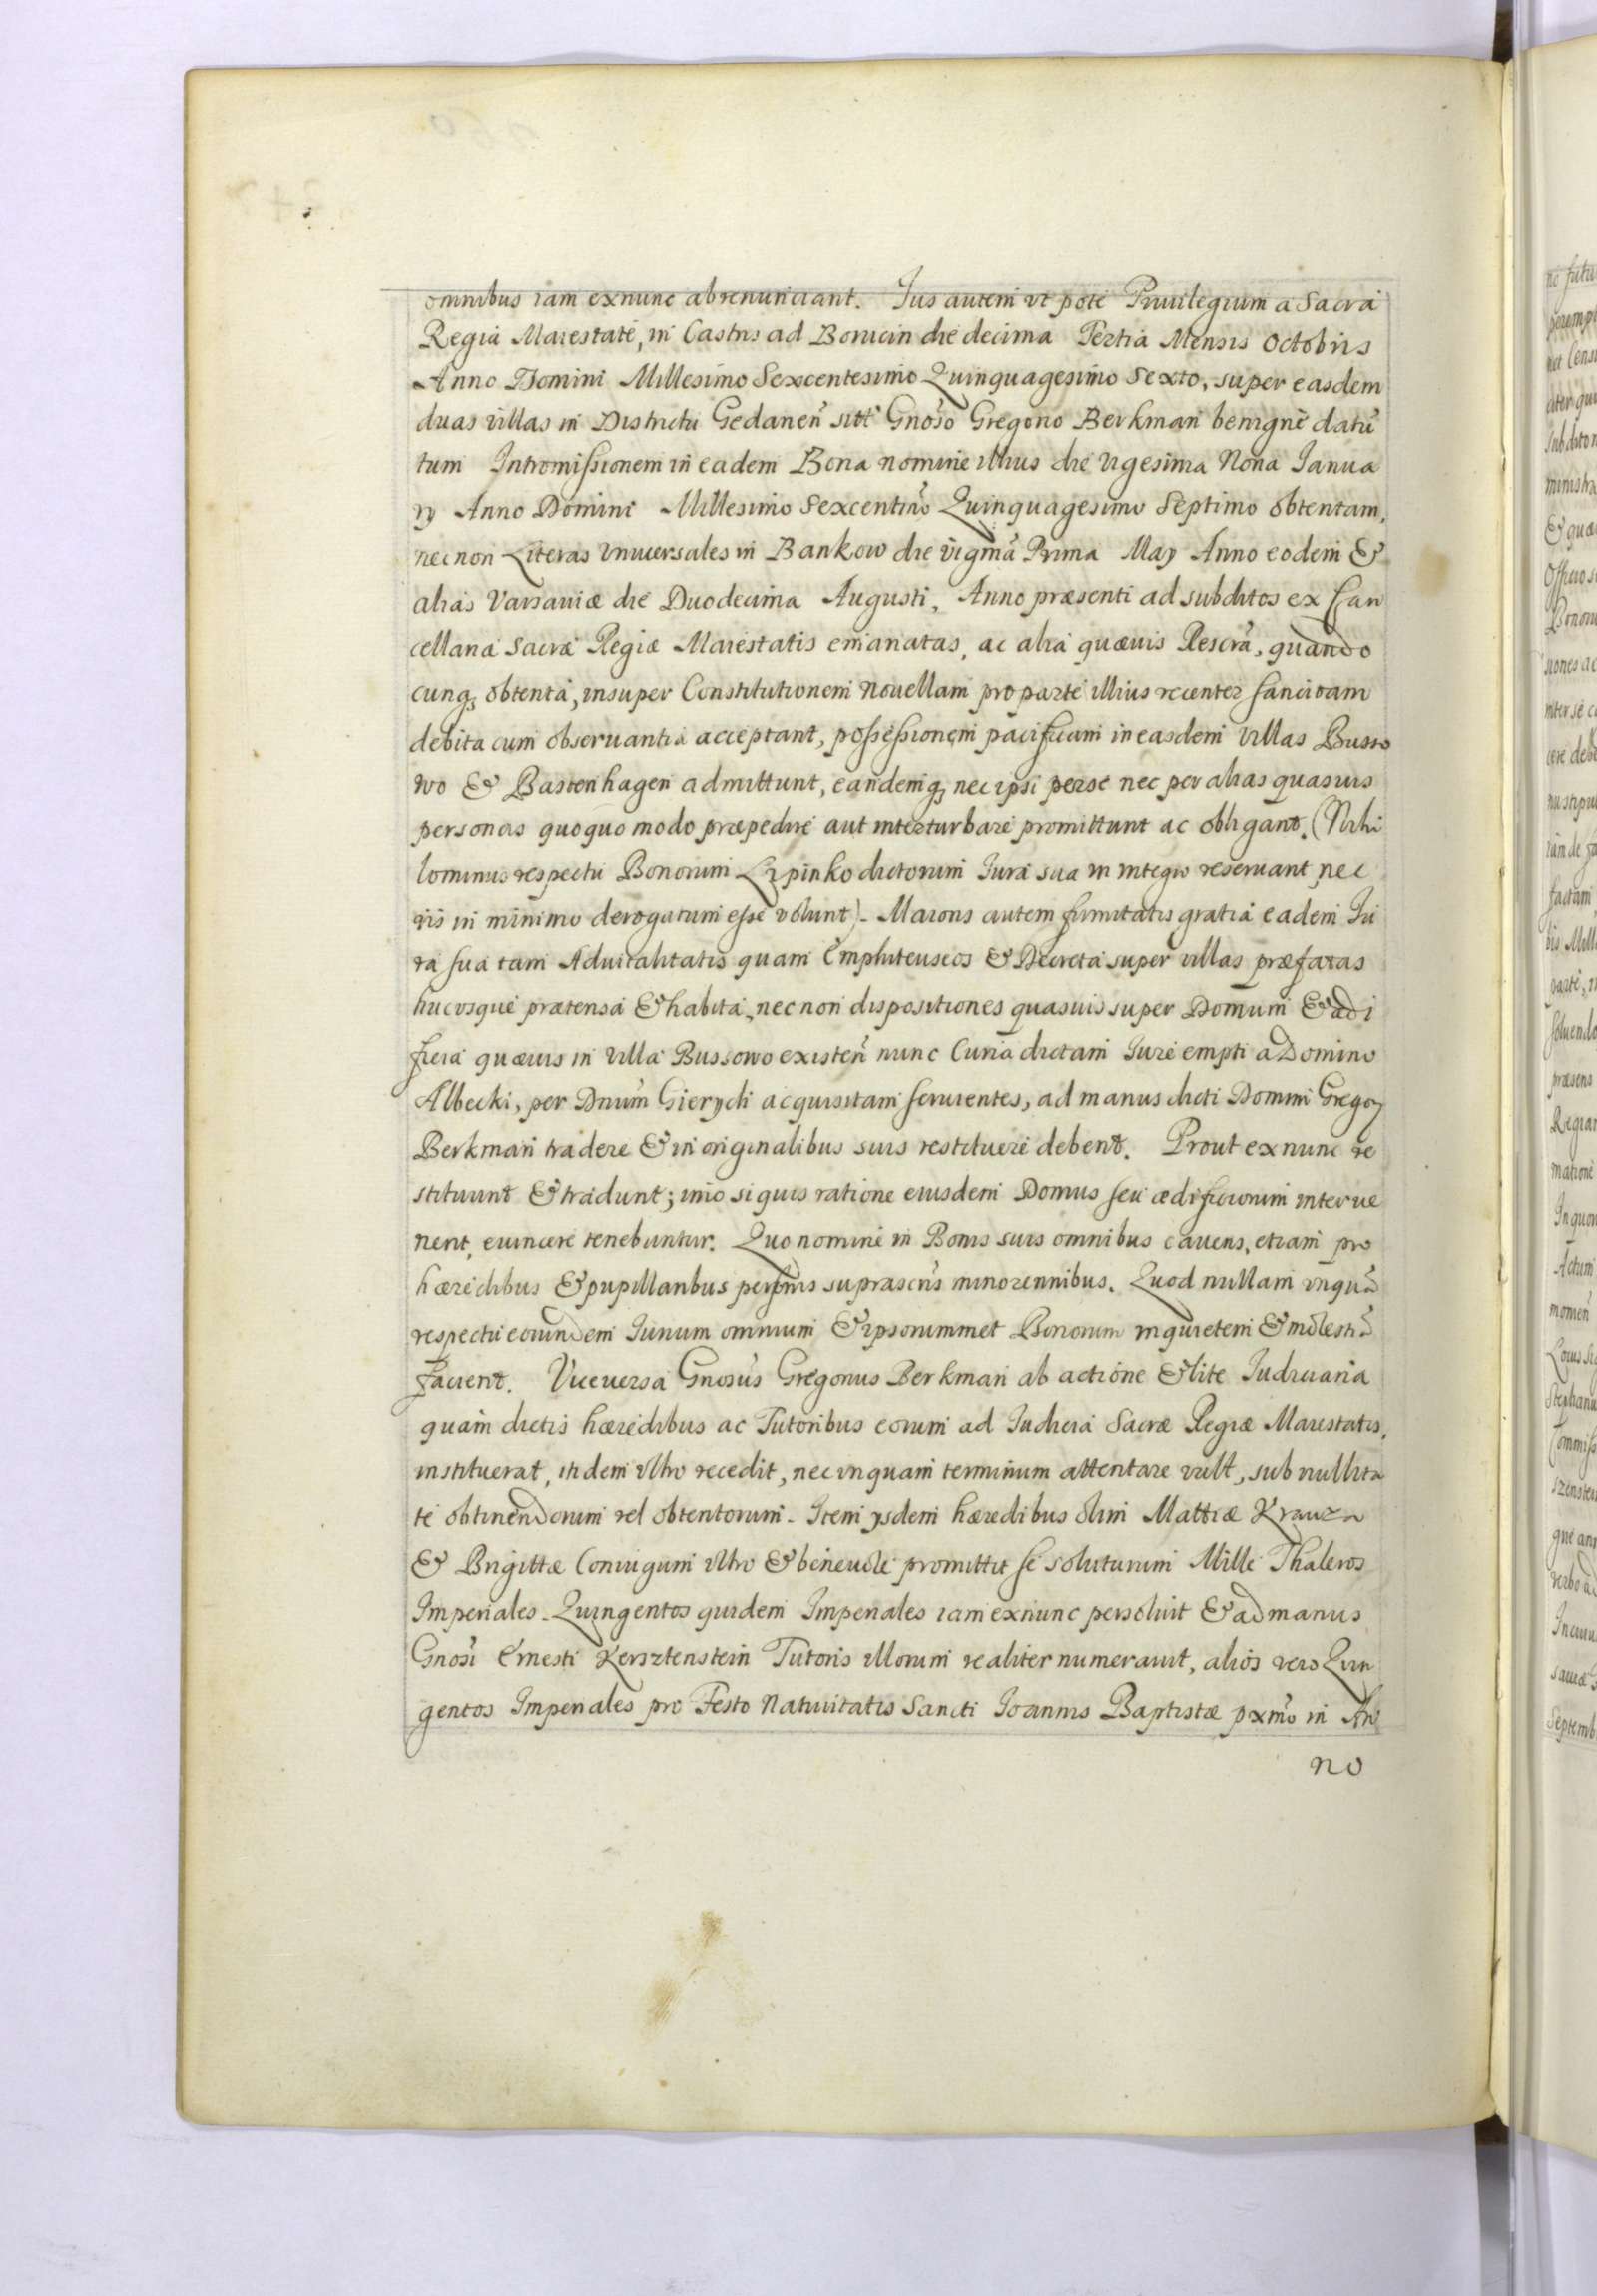 omnibus iam exnunc abrenunciant. Ius autem vt pote Priuilegium a Sacra
Regia Maiestate, in Castris ad Borucin die decima Tertia Mensis Octobris
Anno Domini Millesimo Sexcentesimo Quinquagesimo Sexto, super easdem
duas villas in Districtu Gedaneñ sitt Gnoso Gregorio Berkman benigne datũ
tum Intromissionem in eadem Bona nomine illius die vigesima Nona Ianua
rij Anno Domini Millesimo Sexcentmo Quinquagesimo Septimo obtentam,
nec non Literas vniuersales in Bankow die vigma Prima May Anno eodem &
alias Varsauiæ die Duodecima Augusti, Anno præsenti ad subditos ex Can
cellaria Sacræ Regiæ Maiestatis emanatas, ac alia quæuis Rescra, quando
cunq, obtenta, insuper Constitutionem Nouellam pro parte illius recenter sancitam
debita cum obseruantia acceptant, possessionem pacificam in easdem villas Busso
wo & Bastenhagen admittunt, eandemq, nec ipsi per se nec per alias quasuis
personas quoquo modo præpedire aut interturbare promittunt ac obligant. (Nihi
lominus respectu Bonorum Lipinko dictorum Iura sua in integro reseruant, nec
iis in minimo derogatum esse volunt). Maioris autem firmitatis gratia eadem Iu
ra sua tam Aduitalitatis quam Emphiteuseos & Decreta super villas præfatas
hucusque prætensa & habita, nec non dispositiones quasuis super Domum & ædi
ficia quæuis in villa Bussowo existeñ nunc Curia dictam Iure empti a Domino
Albecki, per Dnum Gierych acquisitam seruientes, ad manus dicti Domini Gregorij
Berkman tradere & in originalibus suis restituere debent. Prout exnunc re
stituunt & tradunt; imo si quis ratione eiusdem Domus seu ædificiorum interue
nerit, euincere tenebuntur. Quo nomine in Bonis suis omnibus cauens, etiam pro
hæredibus & pupillaribus personis suprascris minorennibus. Quod nullam vnquã
respectu eorundem Iurium omnium & ipsorummet Bonorum inquietem & molestiã
facient. Viceuersa Gnosus Gregorius Berkman ab actione & lite Iudiciaria
quam dictis hæredibus ac Tutoribus eorum ad Iudicia Sacræ Regiæ Maiestatis,
instituerat, itidem vltro recedit, nec vnquam terminum attentare vult, sub nullita
te obtinendorum vel obtentorum. Item ysdem hæredibus olim Mattiæ Krauza
& Brigittæ Coniugum vltro & beneuole promittit se soluturum Mille Thaleros
Imperiales. Quingentos quidem Imperiales iam exnunc persoluit & ad manus
Gnosi Ernesti Kersztenstein Tutoris illorum realiter numerauit, alios vero Quin
gentos Imperiales pro Festo Natiuitatis Sancti Ioannis Baptistæ pxmo in An
no